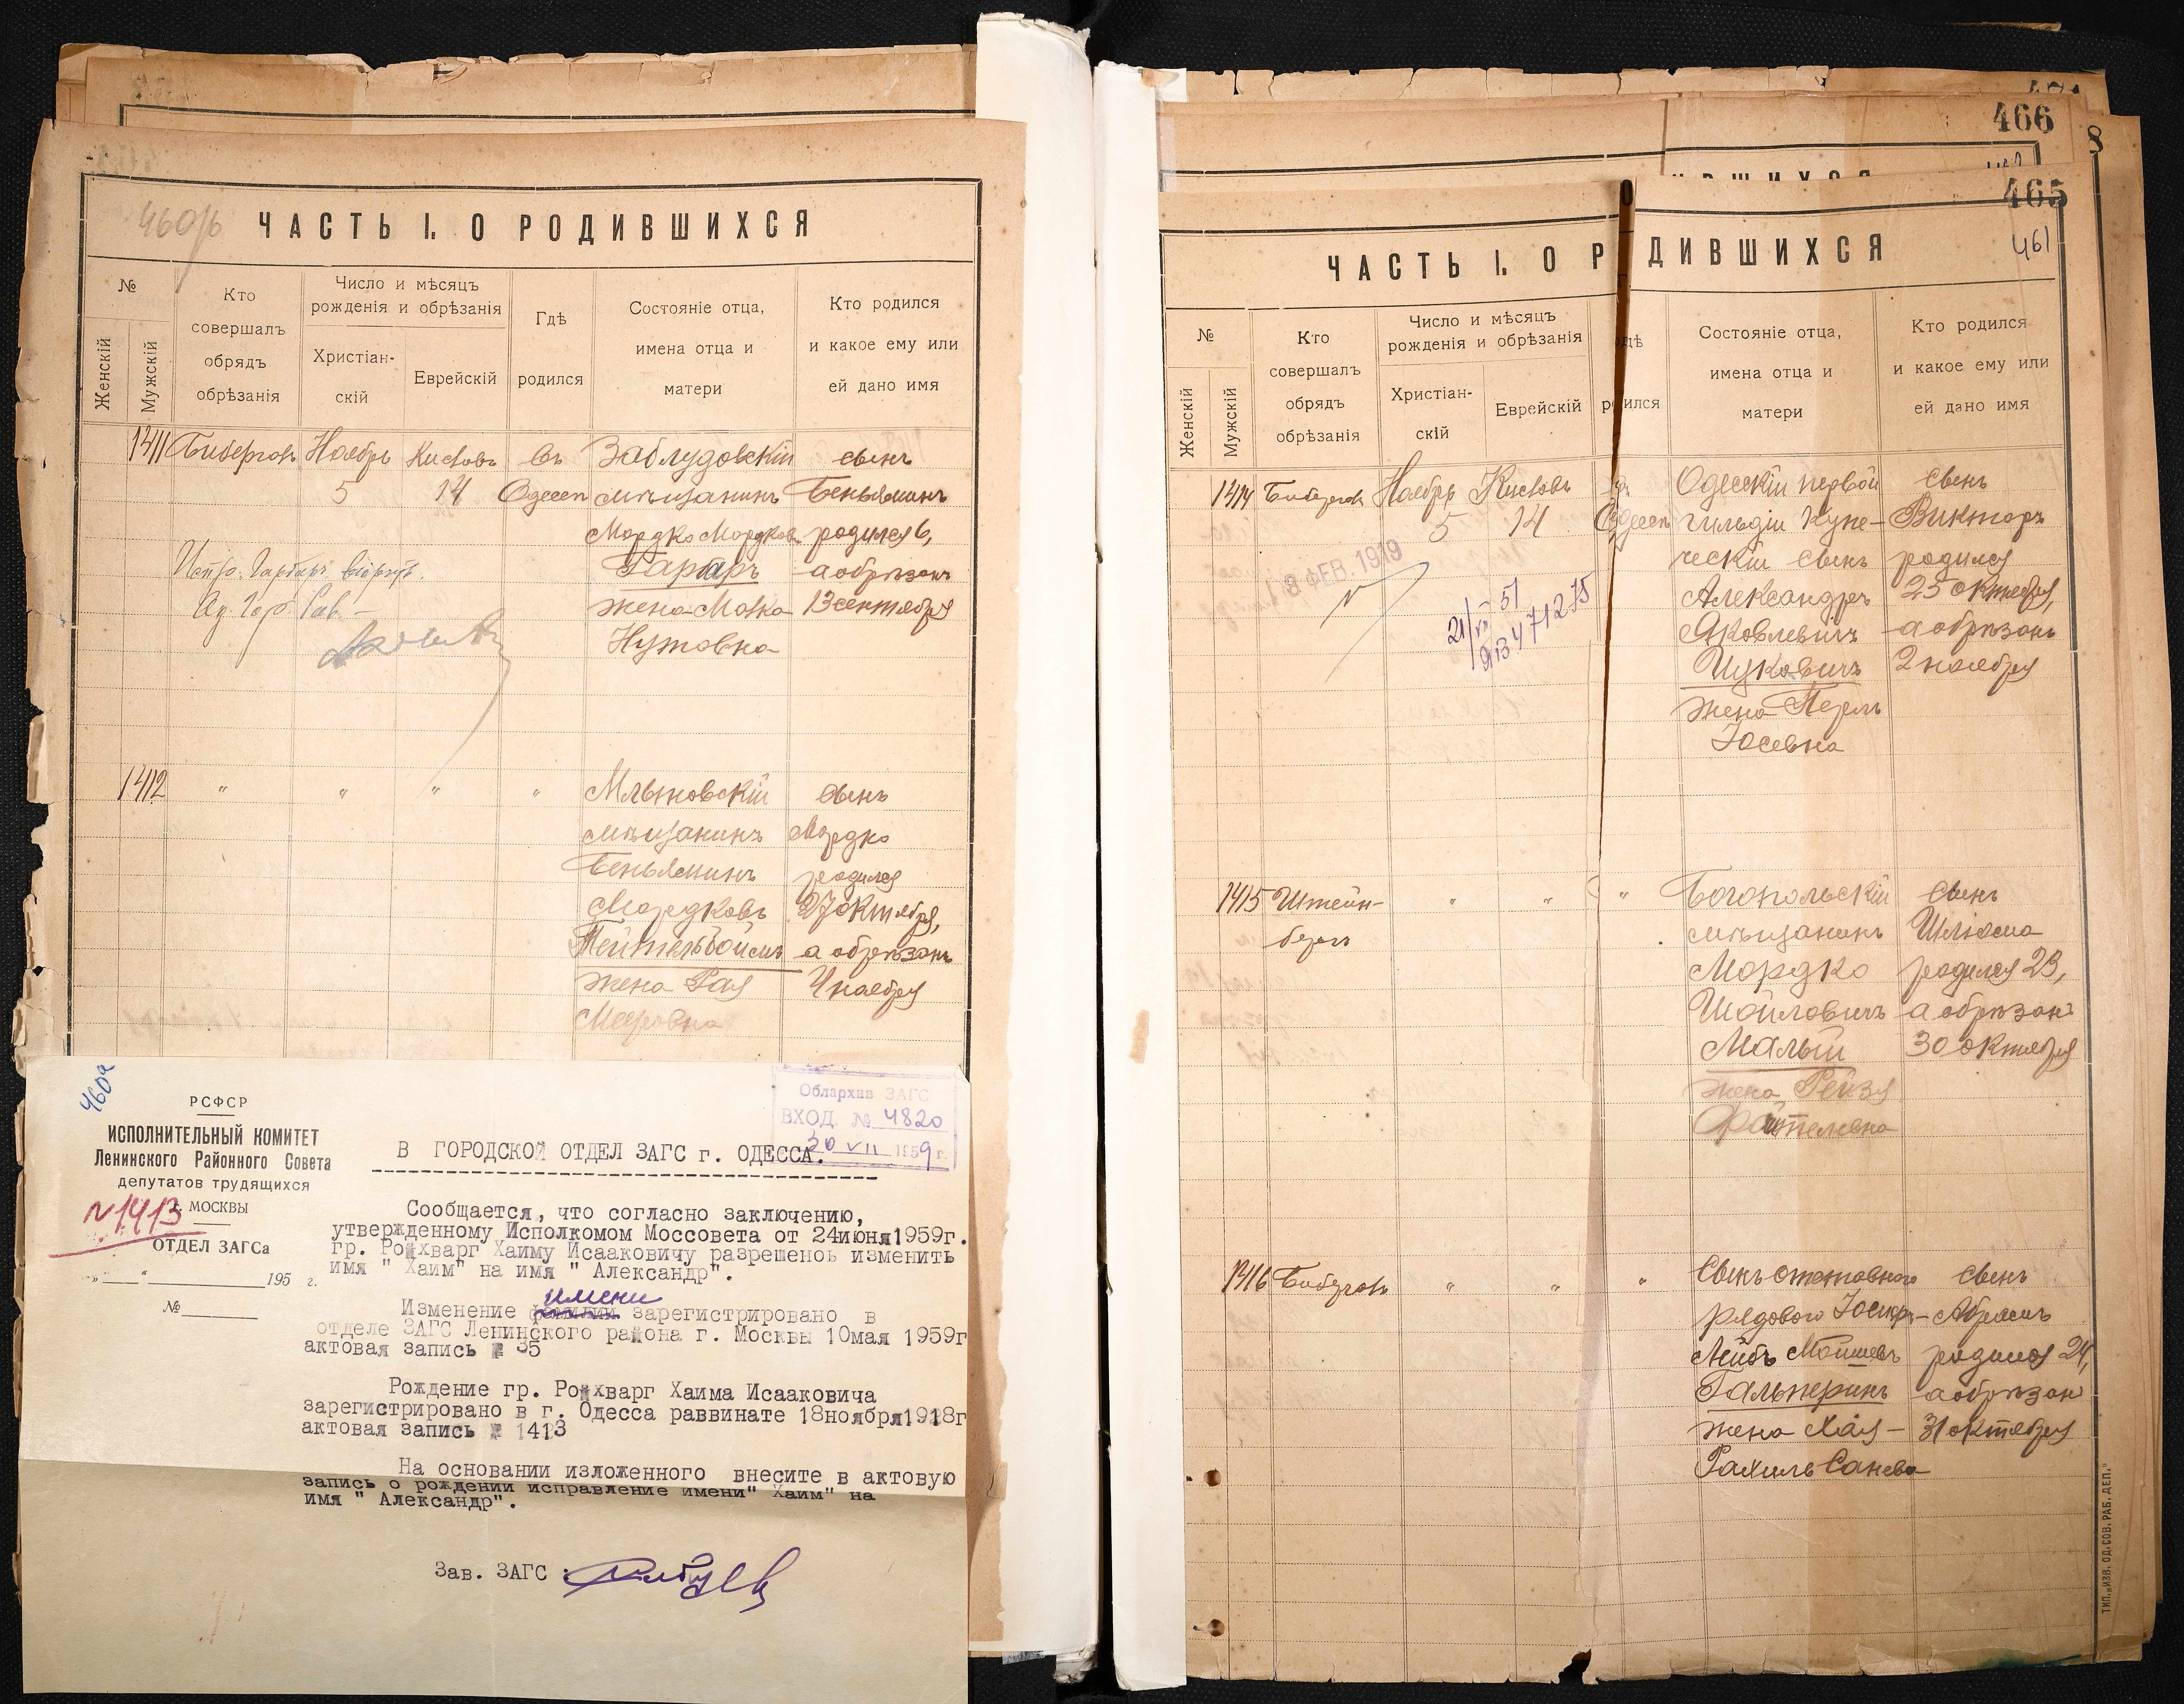 460об
ЧАСТЬ I. О РОДИВШИХСЯ
№
Женскій
Мужскій
Кто
совершалъ
обрядъ
обрѣзанія
Число и мѣсяцъ
рожденія и обрѣзанія
Христіан-
скій
Еврейскій
Гдѣ
родился
Состояніе отца,
имена отца и
матери
Кто родился
и какое ему или
ей дано имя
1411 Ноябрь Кислевъ въ Заблудовскій сынъ
5 14 Одессѣ мѣщанинъ Беньяминъ
Мордко Мордков. родился 6,
Гарбаръ а обрѣзанъ
жена 13 сентября
Нутовна
1412 " " " " сынъ
мѣщанинъ Мордко
Беньяминъ родился
Мордковъ 27 октября,
Тейтельбоймъ а обрѣзанъ
жена Рая 4 ноября
Мееровна
460а
РСФСР
ИСПОЛНИТЕЛЬНЫЙ КОМИТЕТ
Ленинского Районного Совета
депутатов трудящихся
г. МОСКВЫ
N 1413
ОТДЕЛ ЗАГСа
„___“ ________ 195 г.
№________
Облархив ЗАГС
ВХОД. № 4820
30 VII 1959 г.
В ГОРОДСКОЙ ОТДЕЛ ЗАГС г. ОДЕССА.
Сообщается, что согласно заключению,
утвержденному Исполкомом Моссовета от 24июня1959г.
гр. Ройхварг Хаиму Исааковичу разрешено изменить
имя " Хаим" на имя " Александр".
имени
Изменение фамилии зарегистрировано в
отделе ЗАГС Ленинского района г. Москвы 10мая 1959г
актовая запись № 35
Рождение гр. Ройхварг Хаима Исааковича
зарегистрировано в г. Одесса раввинате 18ноября1918г
актовая запись № 1413
На основании изложенного внесите в актовую
запись о рождении исправление имени" Хаим" на
имя " Александр".
Зав. ЗАГС :
466
465
461
ЧАСТЬ I. О РОДИВШИХСЯ
№
Женскій
Мужскій
Кто
совершалъ
обрядъ
обрѣзанія
Число и мѣсяцъ
рожденія и обрѣзанія
Христіан-
скій
Еврейскій
Гдѣ
родился
Состояніе отца,
имена отца и
матери
Кто родился
и какое ему или
ей дано имя
1414 Ноябрь Кислевъ въ Одесскій первой сынъ
5 14 Одессѣ гильдіи купе- Викторъ
ческій сынъ родился
Александръ 25 октября,
Яковлевичъ а обрѣзанъ
Цуковичъ 2 ноября
жена Перль
Іосевна
ФЕВ. 1919
21/VII 51
1415 Штейн- " " " Богопольскій сынъ
бергъ мѣщанинъ Шліома
Мордко родился 23,
Шойловичъ а обрѣзанъ
Малый 30 октября
жена Рейзя
Файтелевна
1416 " " " Сынъ отставного сынъ
рядового Абрамъ
Лейбъ Мошевъ родился 24,
Гальперинъ а обрѣзан
жена Хая- 31 октября
Рахиль
ТИП. „ИЗВ. ОД. СОВ. РАБ. ДЕП."